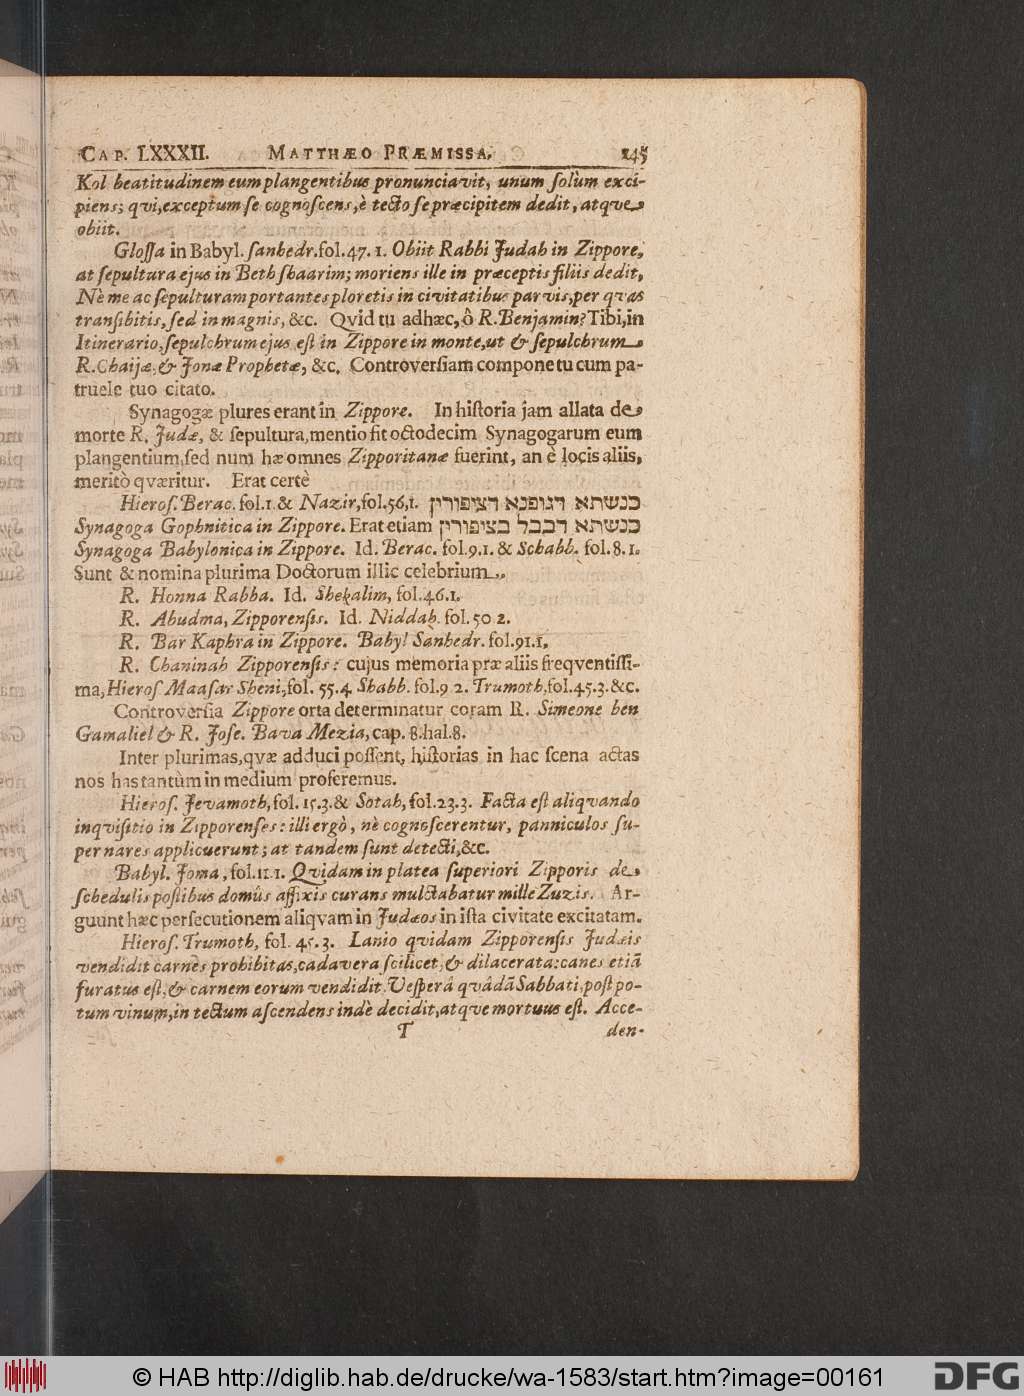 CAP. LXXXII. MATTHÆO PRÆMISSA. 145
Kol beatitudinem eum plangentibus pronunciavit, unum ſolùm exci-
piens; qvi, exceptum ſe cognoſcens, è tecto ſe præcipitem dedit, atqve
obiit.
Gloſſa in Babyl. ſanhedr. fol. 47. 1. Obiit Rabbi Judah in Zippore,
at ſepultura ejus in Beth ſhaarim; moriens ille in præceptis filiis dedit,
Nè me ac ſepulturam portantes ploretis in civitatibus parvis, per qvas
tranſibitis, ſed in magnis, &c. Qvid tu adhæc, ô R. Benjamin? Tibi, in
Itinerario, ſepulchrum ejus eſt in Zippore in monte, ut & ſepulchrum
R. Chaijæ, & Jonæ Prophetæ, &c. Controverſiam compone tu cum pa-
truele tuo citato.
Synagogæ plures erant in Zippore. In hiſtoria jam allata de
morte R. Judæ, & ſepultura, mentio fit octodecim Synagogarum eum
plangentium, ſed num hæ omnes Zipporitanæ fuerint, an è locis aliis,
meritò qværitur. Erat certè
Hieroſ. Berac. fol. 1. & Nazir, fol. 56, 1. כנשתא דגופנא דציפורין
Synagoga Gophnitica in Zippore. Erat etiam כנשתא דבבל בציפורין
Synagoga Babylonica in Zippore. Id. Berac. fol. 9. 1. & Schabb. fol. 8. 1.
Sunt & nomina plurima Doctorum illic celebrium.
R. Honna Rabba. Id. Shekalim, fol. 46. 1.
R. Abudma, Zipporenſis. Id. Niddah. fol. 50 2.
R. Bar Kaphra in Zippore. Babyl Sanhedr. fol. 91. 1.
R. Chaninah Zipporenſis: cujus memoria præ aliis freqventiſſi-
ma, Hieroſ Maaſar Sheni, fol. 55. 4 Shabb. fol. 9 2. Trumoth, fol. 45. 3. &c.
Controverſia Zippore orta determinatur coram R. Simeone ben
Gamaliel & R. Joſe. Bava Mezia, cap. 8. hal. 8.
Inter plurimas, qvæ adduci poſſent, hiſtorias in hac ſcena actas
nos has tantùm in medium proferemus.
Hieroſ. Jevamoth, fol. 15. 3. & Sotah, fol. 23. 3. Facta eſt aliqvando
inqviſitio in Zipporenſes: illi ergò, nè cognoſcerentur, panniculos ſu-
per nares applicuerunt; at tandem ſunt detecti, &c.
Babyl. Joma, fol. 11. 1. Qvidam in platea ſuperiori Zipporis de
ſchedulis poſtibus domûs affixis curans mulctabatur mille Zuzis. Ar-
guunt hæc perſecutionem aliqvam in Judæos in iſta civitate excitatam.
Hieroſ. Trumoth, fol. 45. 3. Lanio qvidam Zipporenſis Judæis
vendidit carnes prohibitas, cadavera ſcilicet, & dilacerata: canes etiã
furatus eſt, & carnem eorum vendidit. Veſperâ qvâdã Sabbati, poſt po-
tum vinum, in tectum aſcendens indè decidit, atqve mortuus eſt. Acce-
T den-
© HAB http://diglib.hab.de/drucke/wa-1583/start.htm?image=00161
DFG